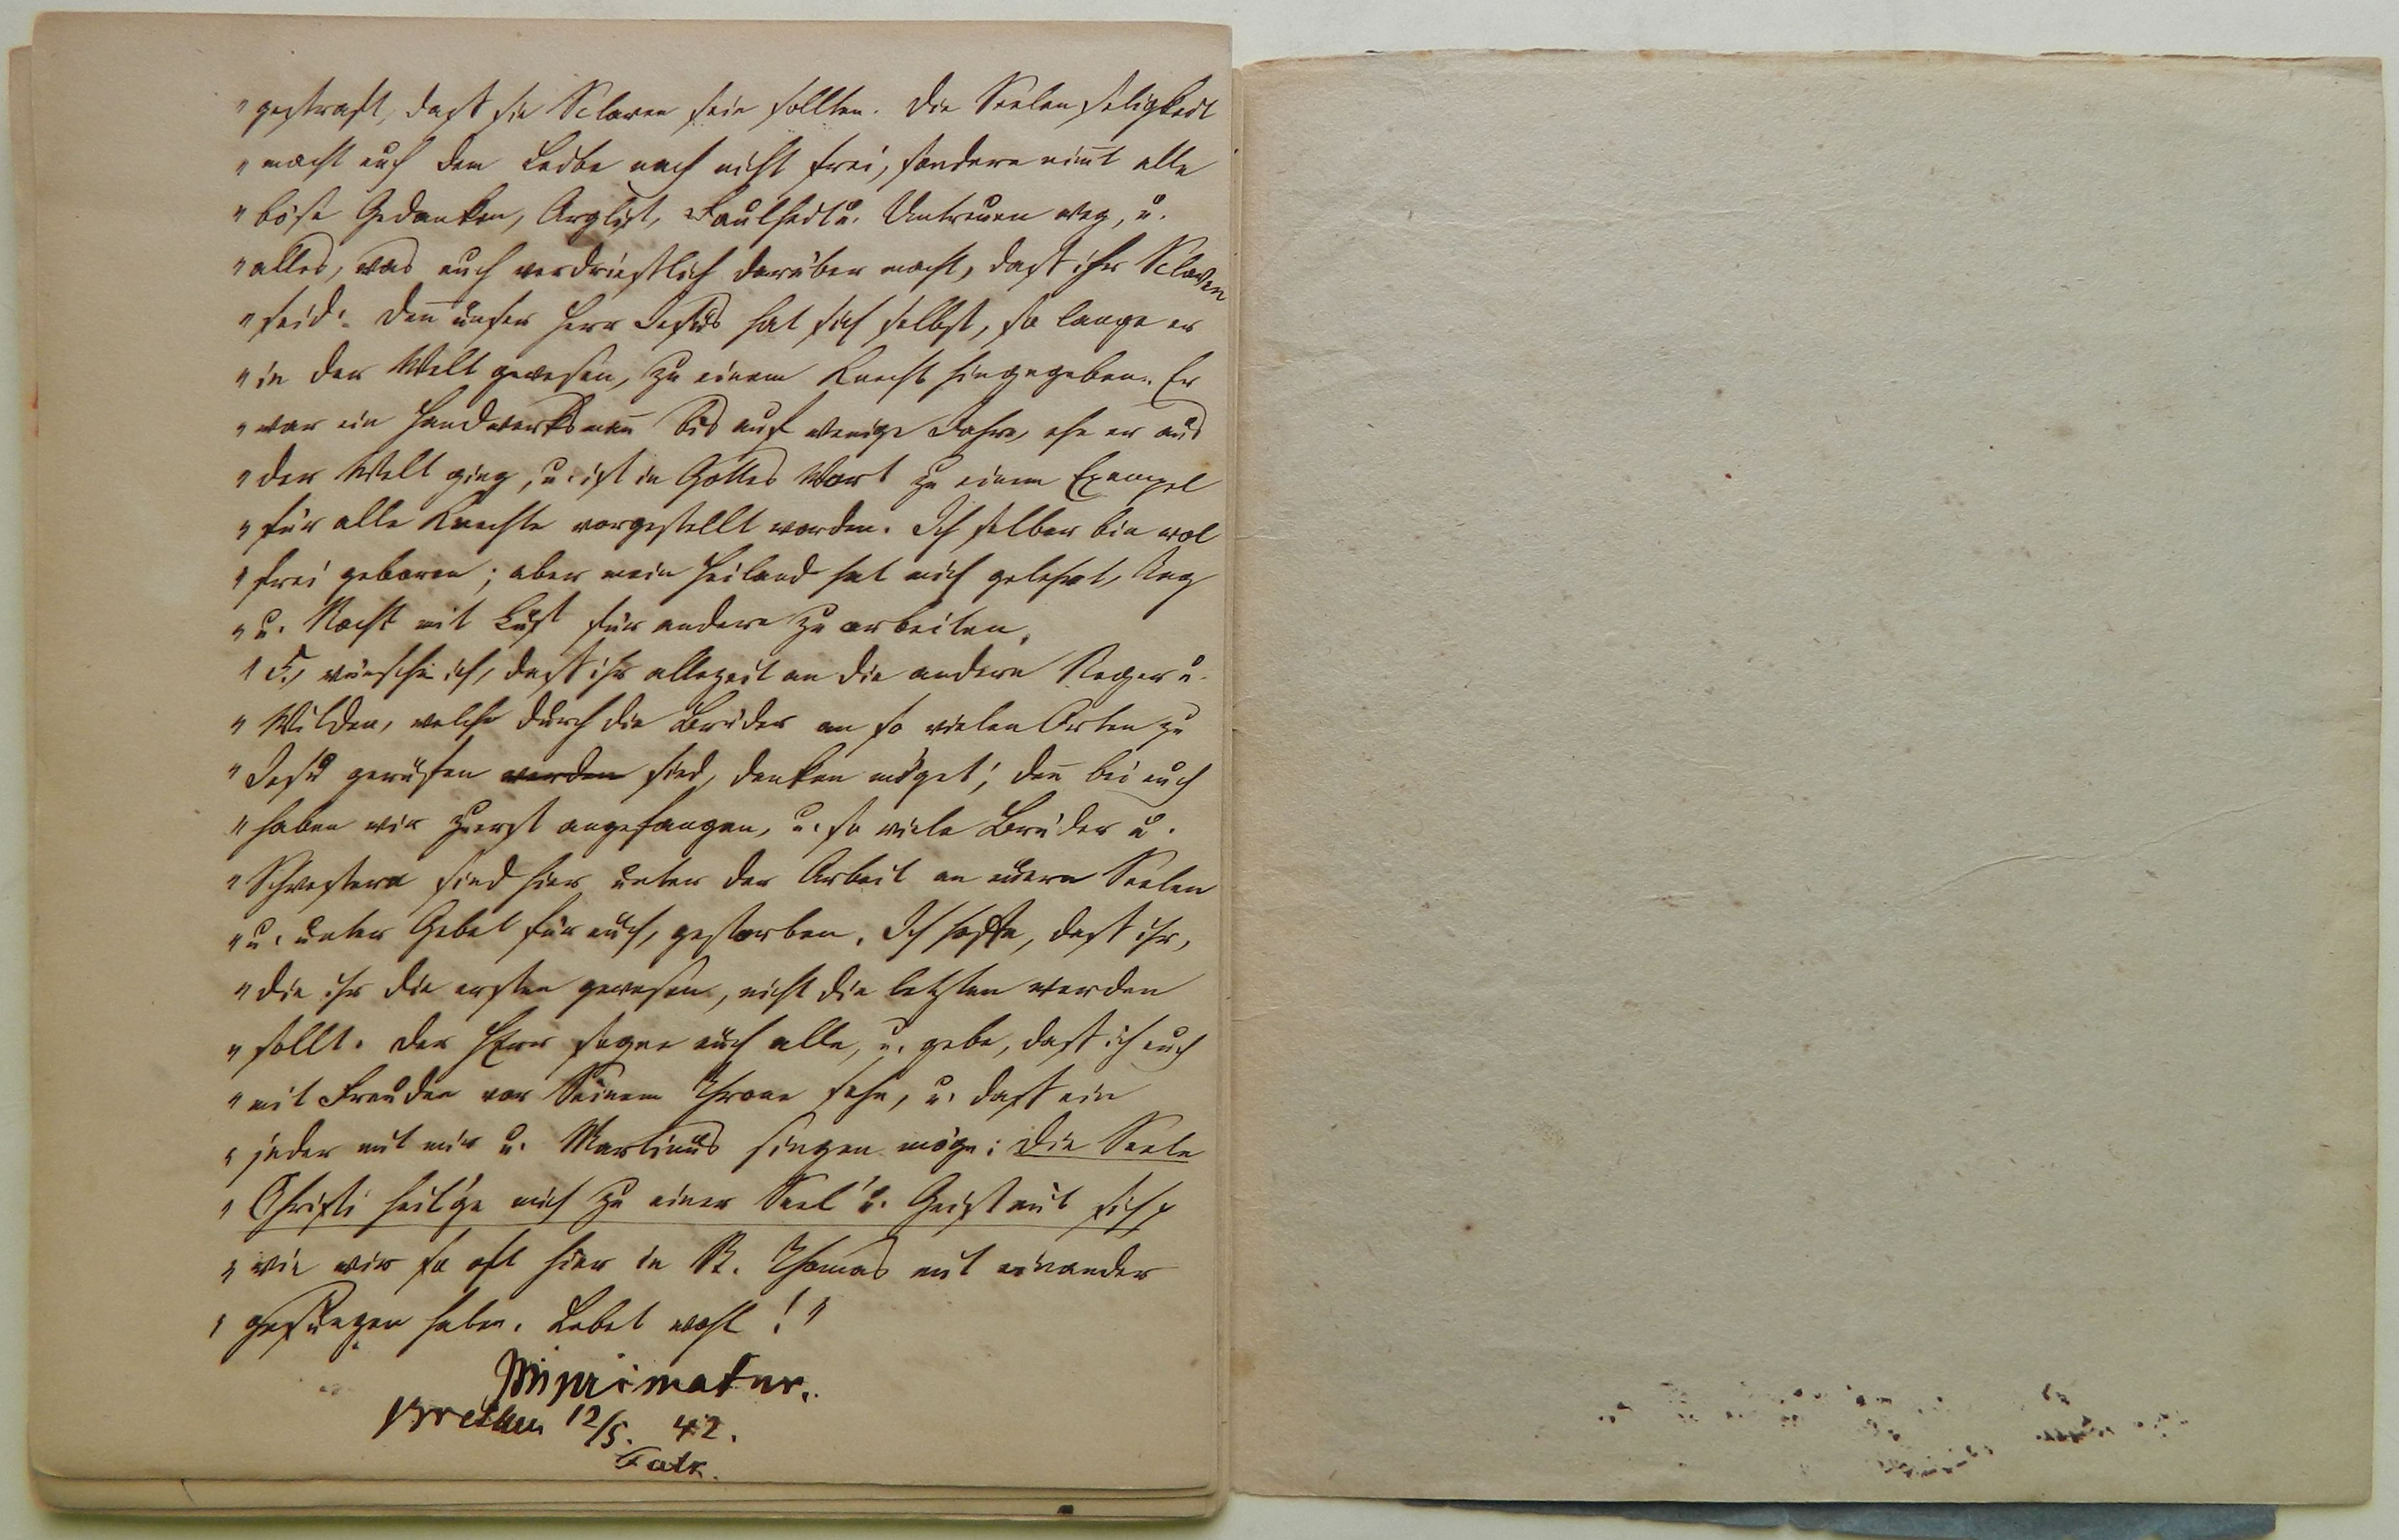 "gestraft, daß sie Sclaven sein sollten. Die Seelenseligkeit
"macht euch dem Leibe nach nicht frei, sondern nim̅t alle
"böse Gedanken, Arglist, Faulheit u. Untreuen weg, u.
"alles, was euch verdrießlich darüber macht, daß ihr Sclaven
"seid: Den̅ unser Herr Jesus hat sich selbst, so lange er
"in der Welt gewesen, zu einem Knecht hingegeben. Er
"war ein Handwerksman̅ bis auf wenige Jahre, ehe er aus
"der Welt ging, u. ist in Gottes Wort zu einem Exempel
"für alle Knechte vorgestellt worden. Ich selber bin wol
"frei geboren; aber mein Heiland hat mich gelehrt, Tag
"u. Nacht mit Lust für andere zu arbeiten.
"5., wünsche ich, daß ihr allezeit an die andern Neger u.
"Wilden, welche durch die Brüder an so vielen Orten zu
"Jesu gerufen worden sind, denken möget; den̅ bei euch
"haben wir zuerst angefangen, u. so viele Brüder u.
"Schwestern sind hier unter der Arbeit an euern Seelen
"u. unter Gebet für euch, gestorben. Ich hoffe, daß ihr,
"die ihr die ersten gewesen, nicht die letzten werden
"sollt. Der HErr segne euch alle, u. gebe, daß ich euch
"mit Freuden vor Seinem Throne sehe, u. daß ein
"jeder mit mir u. Martinus singen möge: Die Seele
"Christi heil'ge mich zu einer Seel' u. Geist mit sich
"wie wir so oft hier in St. Thomas mit einander
"gesungen haben. Lebet wohl!"
Imprimatur.
12/5. 42.